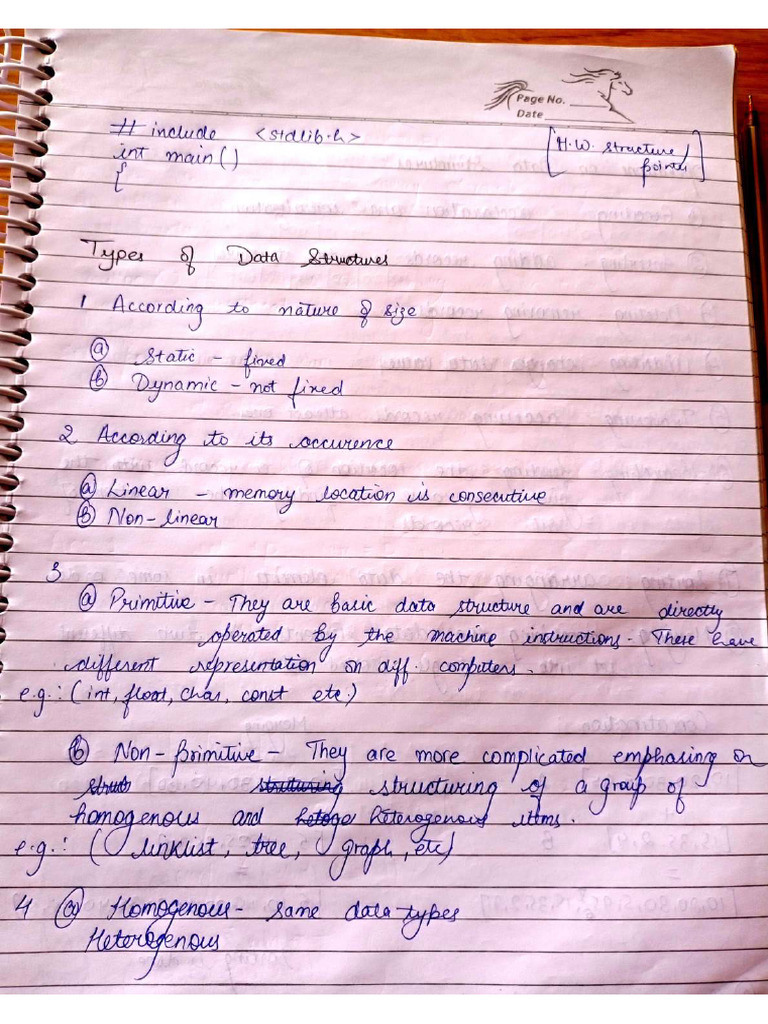 Page No.
Date
# include <stdlib.h>
int main()
{
[H.W. structure/
pointer]
Types of Data Structures
1 According to nature of size
(a) Static - fixed
(b) Dynamic - not fixed
2 According to its occurence
(a) Linear - memory location is consecutive
(b) Non-linear
3
(a) Primitive - They are basic data structure and are directly
operated by the machine instructions. These have
different representation on diff. computers.
e.g.: (int, float, char, const etc.)
(b) Non-primitive - They are more complicated emphasing on
structuring of a group of
homogenous and heterogenous items.
e.g.: (linklist, tree, graph, etc)
4 (a) Homogenous - same data types
Heterogenous